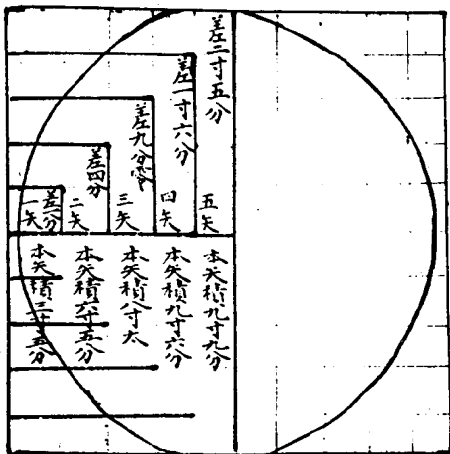 差二寸五分
差一寸六分
差九分零
差四分
差一分
五矢
四矢
三矢
二矢
一矢
本矢積九寸九分
本矢積九寸六分
本矢積八寸太
本矢積六寸五分
本矢積三寸五分